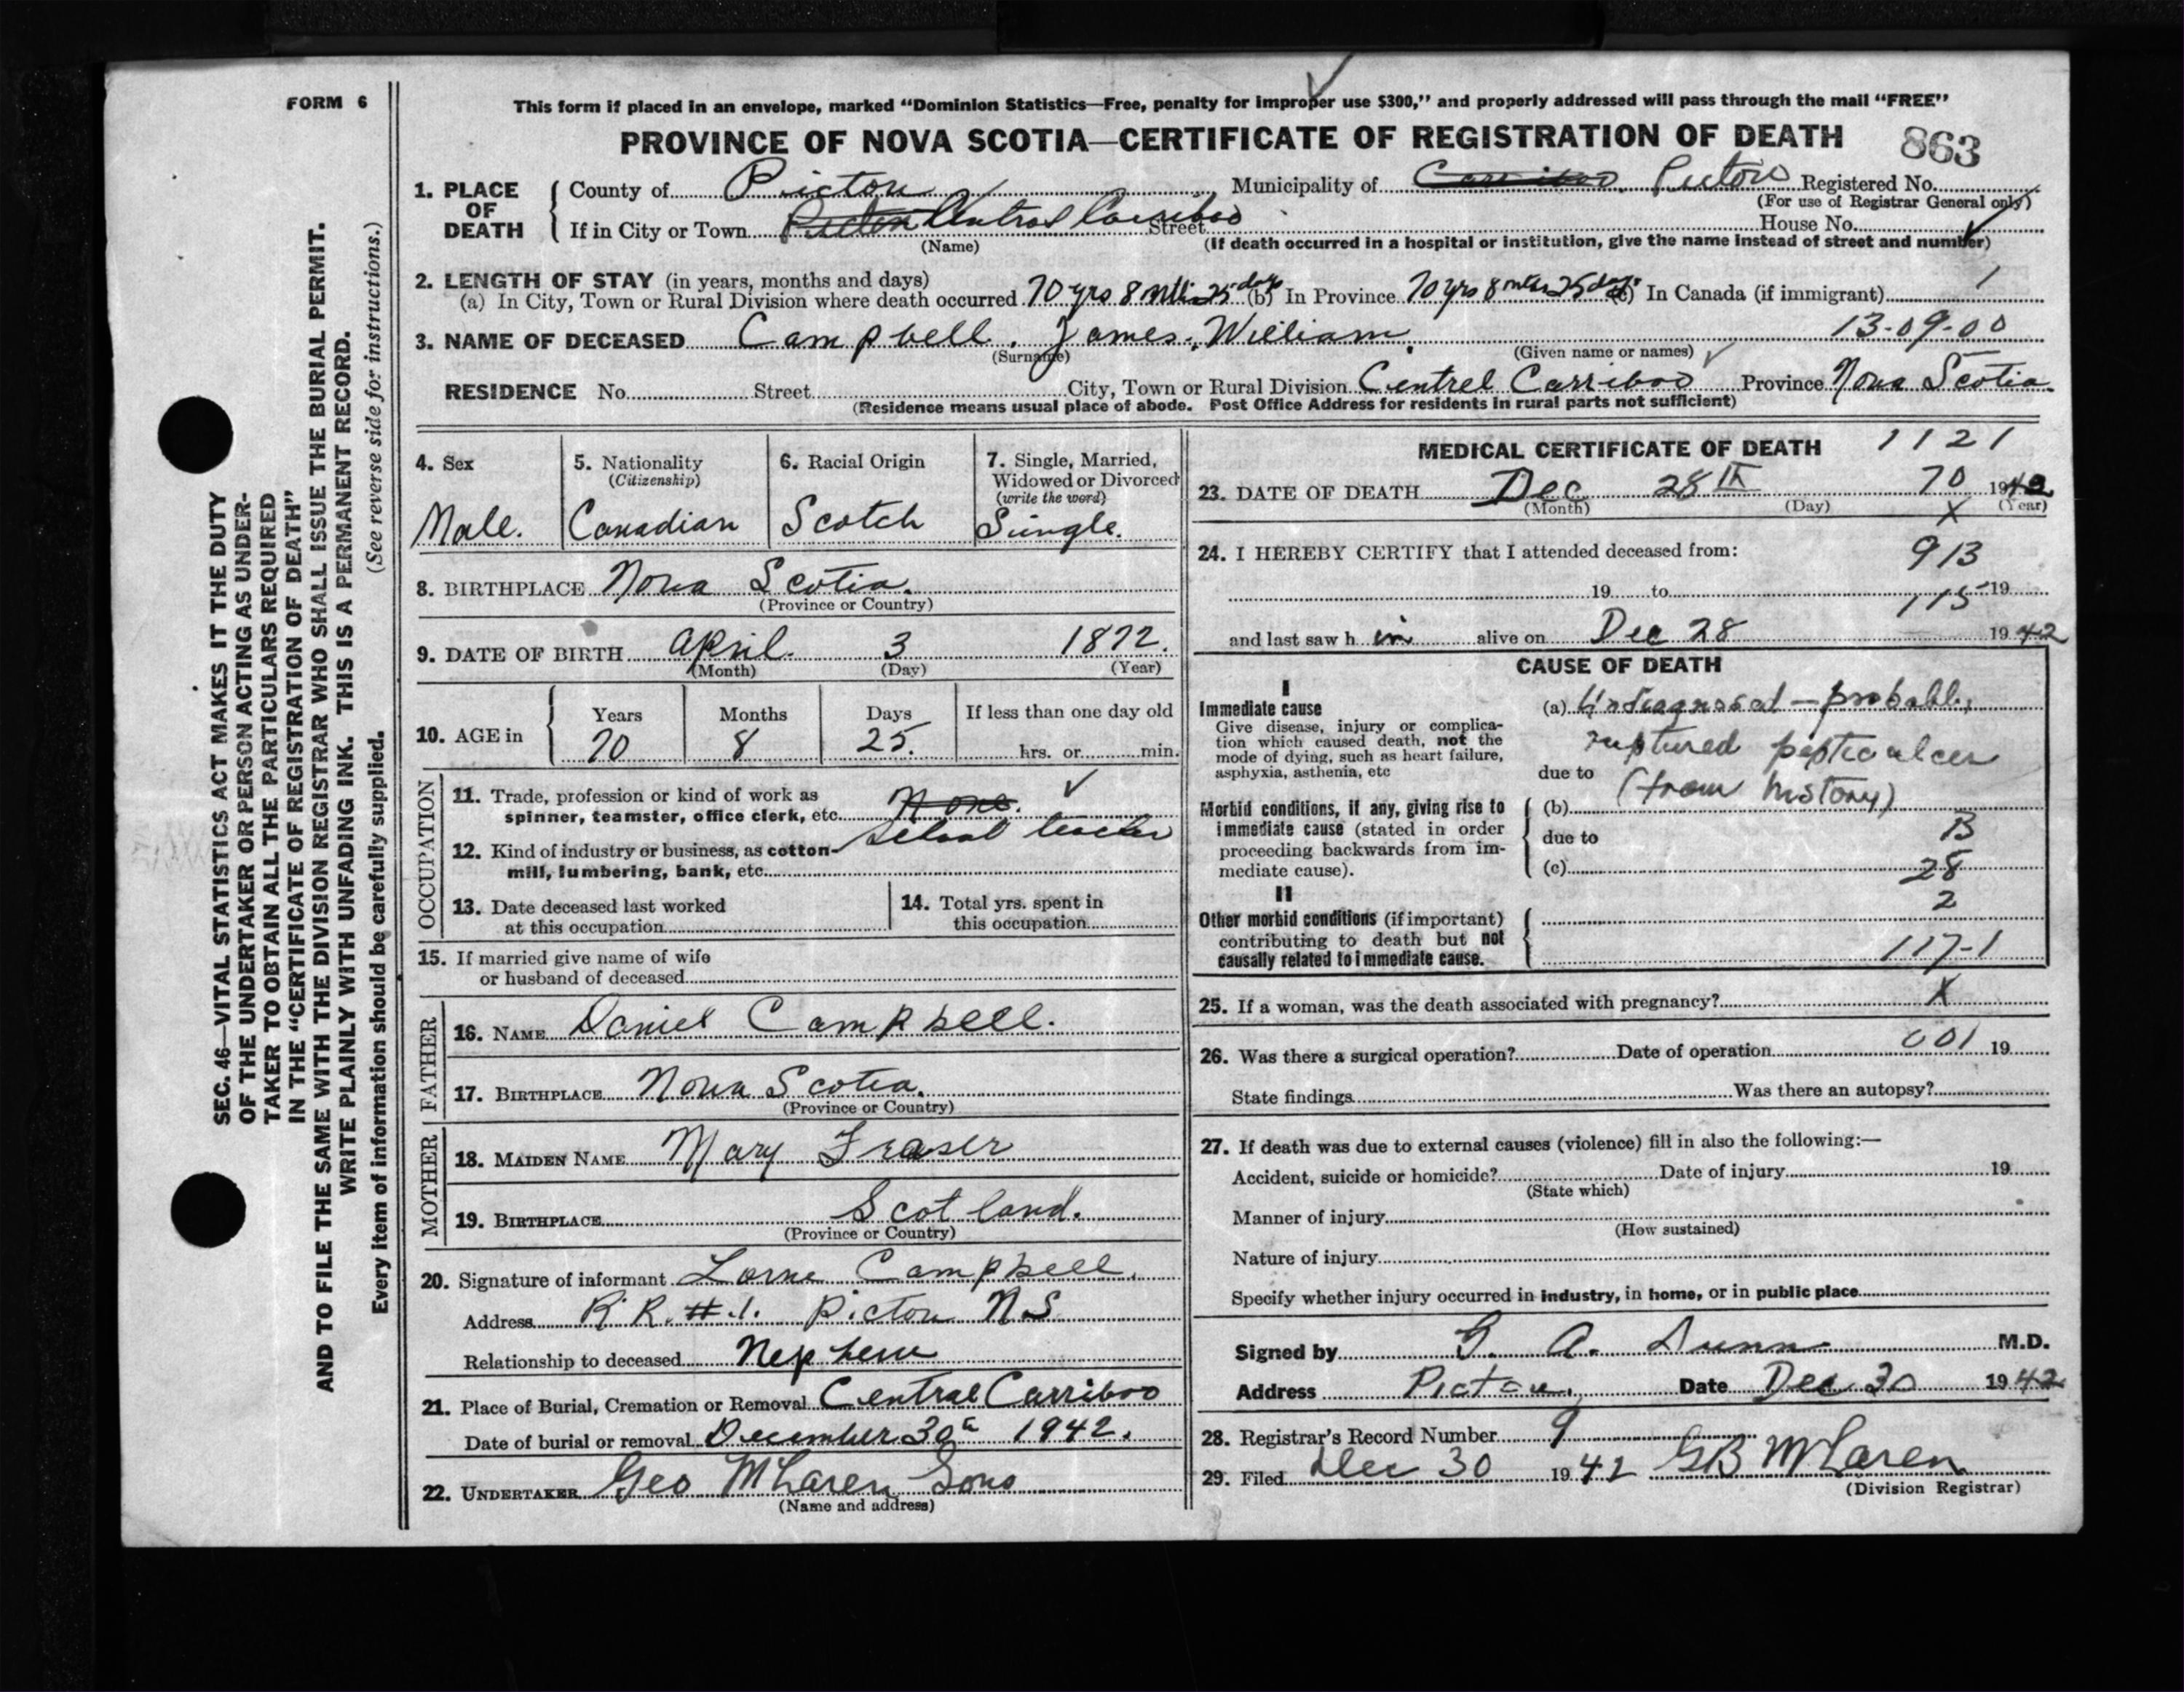 FORM 6
This form if placed in an envelope, marked “Dominion Statistics—Free, penalty for improper use $300,” and properly addressed will pass through the mail “FREE”
PROVINCE OF NOVA SCOTIA—CERTIFICATE OF REGISTRATION OF DEATH 863
1. PLACE OF DEATH
County of Pictou Municipality of Carriboo Pictou Registered No.
(For use of Registrar General only)
If in City or Town Pictou Central Carriboo Street House No.
(Name) (If death occurred in a hospital or institution, give the name instead of street and number)
2. LENGTH OF STAY (in years, months and days)
(a) In City, Town or Rural Division where death occurred 70 yrs 8 mths 25 days (b) In Province 70 yrs 8 mths 25 days (c) In Canada (if immigrant) 1
3. NAME OF DECEASED Campbell. James. William. 13-09-00
(Surname) (Given name or names)
RESIDENCE No. Street City, Town or Rural Division Centrel Carriboo Province Nova Scotia.
(Residence means usual place of abode. Post Office Address for residents in rural parts not sufficient)
4. Sex Male.
5. Nationality (Citizenship) Canadian
6. Racial Origin Scotch
7. Single, Married, Widowed or Divorced (write the word) Single.
8. BIRTHPLACE Nova Scotia.
(Province or Country)
9. DATE OF BIRTH April 3 1872.
(Month) (Day) (Year)
10. AGE in Years 70 Months 8 Days 25. If less than one day old hrs. or min.
OCCUPATION
11. Trade, profession or kind of work as spinner, teamster, office clerk, etc. None.
School teacher
12. Kind of industry or business, as cotton-mill, lumbering, bank, etc.
13. Date deceased last worked at this occupation
14. Total yrs. spent in this occupation
15. If married give name of wife or husband of deceased
FATHER
16. NAME Daniel Campbell.
17. BIRTHPLACE Nova Scotia.
(Province or Country)
MOTHER
18. MAIDEN NAME Mary Fraser
19. BIRTHPLACE Scotland.
(Province or Country)
20. Signature of informant Lorne Campbell.
Address R R. # 1. Pictou N S
Relationship to deceased Nephew
21. Place of Burial, Cremation or Removal Central Carriboo
Date of burial or removal December 30 1942.
22. UNDERTAKER Geo McLaren Sons
(Name and address)
MEDICAL CERTIFICATE OF DEATH 1121
23. DATE OF DEATH Dec 28th 70 1942
(Month) (Day) (Year)
X
24. I HEREBY CERTIFY that I attended deceased from: 913
19 to 115 19
and last saw h im alive on Dec 28 1942
CAUSE OF DEATH
I
Immediate cause
Give disease, injury or complication which caused death, not the mode of dying, such as heart failure, asphyxia, asthenia, etc
(a) Undiagnosed – probably
ruptured peptic ulcer
due to (from history)
Morbid conditions, if any, giving rise to immediate cause (stated in order proceeding backwards from immediate cause).
(b)
due to B
(c) 28
II
Other morbid conditions (if important) contributing to death but not causally related to immediate cause.
2
117-1
25. If a woman, was the death associated with pregnancy? X
26. Was there a surgical operation? Date of operation 001 19
State findings Was there an autopsy?
27. If death was due to external causes (violence) fill in also the following:—
Accident, suicide or homicide? Date of injury 19
(State which)
Manner of injury
(How sustained)
Nature of injury
Specify whether injury occurred in industry, in home, or in public place
Signed by G. A. Dunn M.D.
Address Pictou, Date Dec 30 1942
28. Registrar's Record Number 9
29. Filed Dec 30 1942 GB McLaren
(Division Registrar)
SEC. 46—VITAL STATISTICS ACT MAKES IT THE DUTY
OF THE UNDERTAKER OR PERSON ACTING AS UNDER-
TAKER TO OBTAIN ALL THE PARTICULARS REQUIRED
IN THE “CERTIFICATE OF REGISTRATION OF DEATH”
AND TO FILE THE SAME WITH THE DIVISION REGISTRAR WHO SHALL ISSUE THE BURIAL PERMIT.
WRITE PLAINLY WITH UNFADING INK. THIS IS A PERMANENT RECORD.
Every item of information should be carefully supplied. (See reverse side for instructions.)